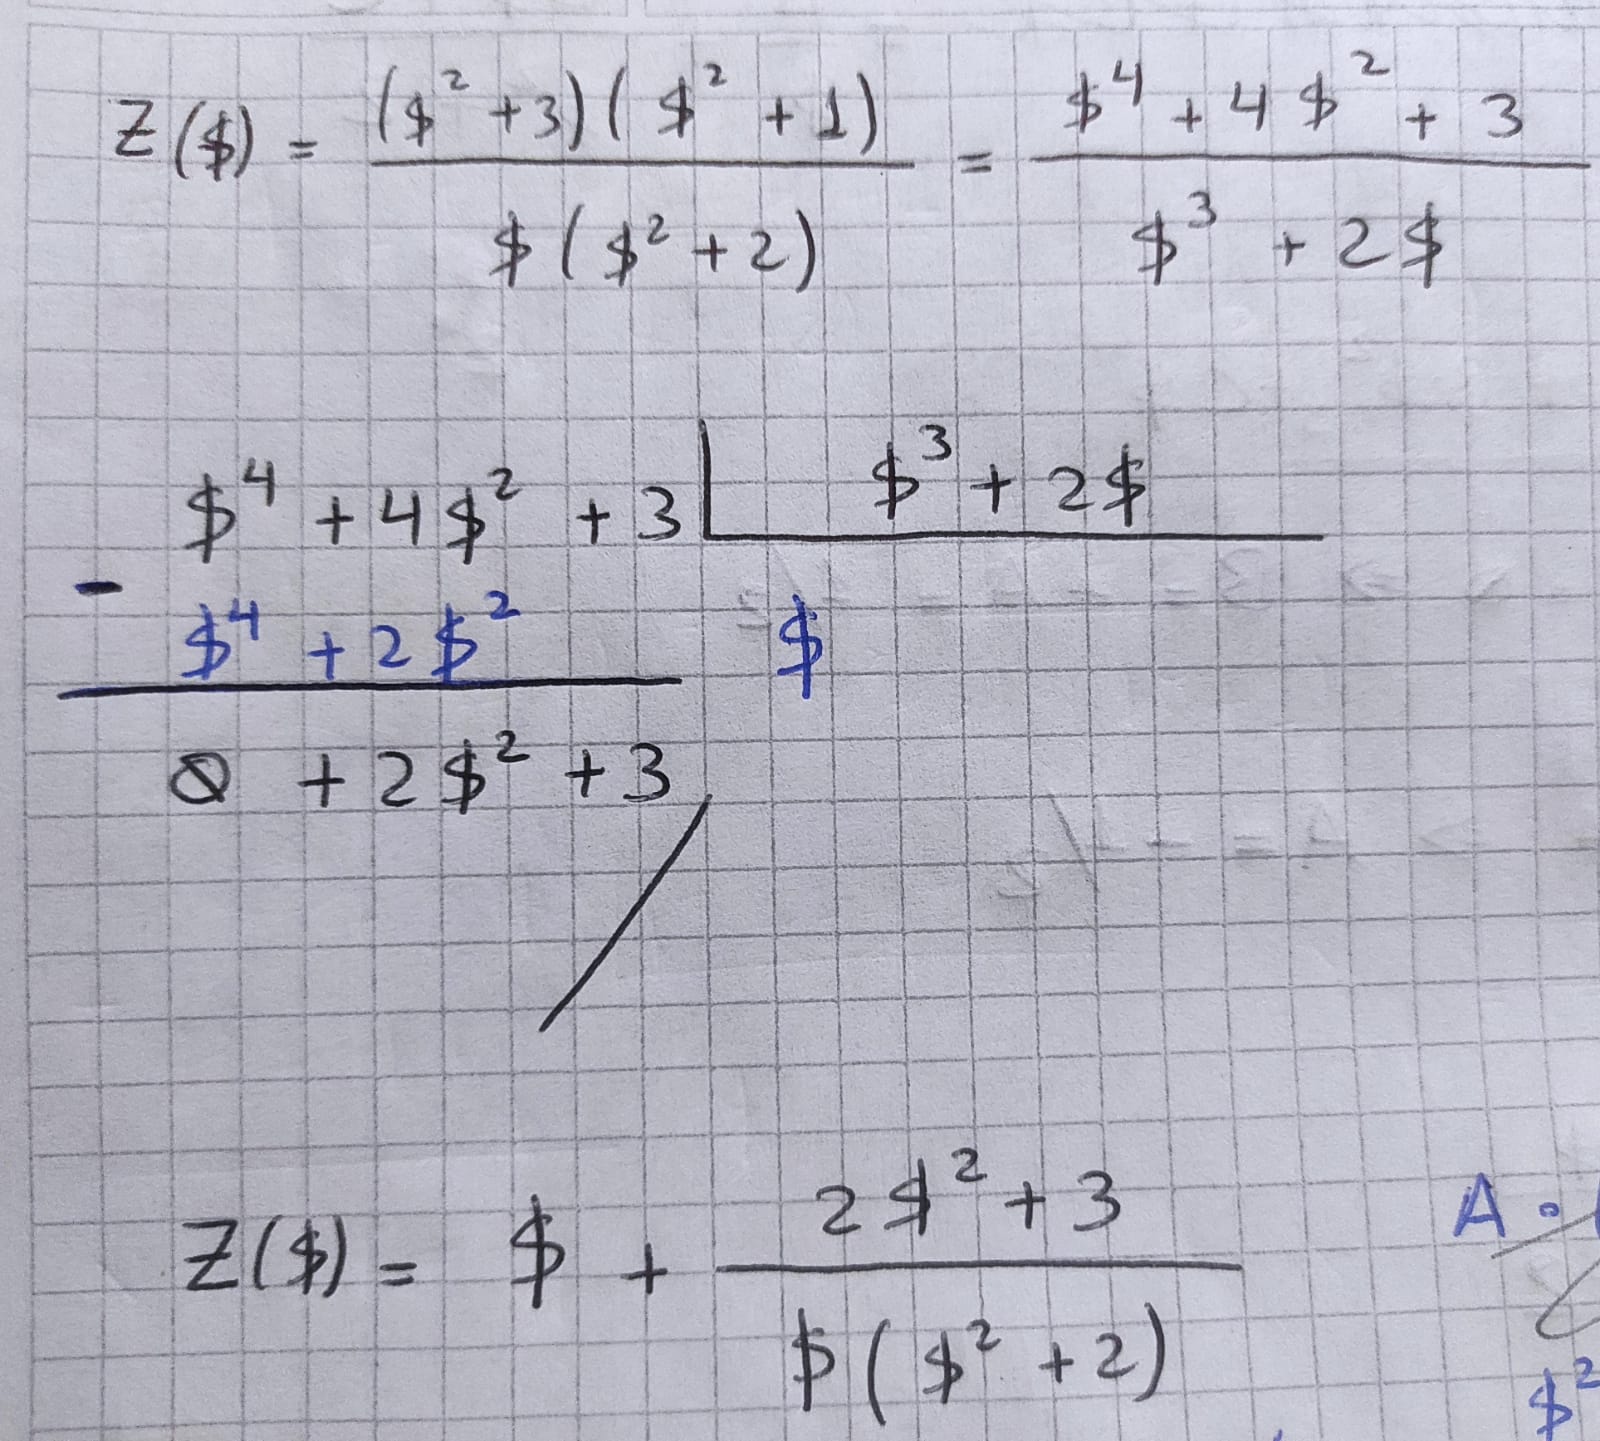 Z($) = ($² + 3)($² + 1) / $($² + 2) = $⁴ + 4$² + 3 / $³ + 2$
$⁴ + 4$² + 3 | $³ + 2$
- $⁴ + 2$² $
0 + 2$² + 3
Z($) = $ + 2$² + 3 / $($² + 2)
A ∘
$²